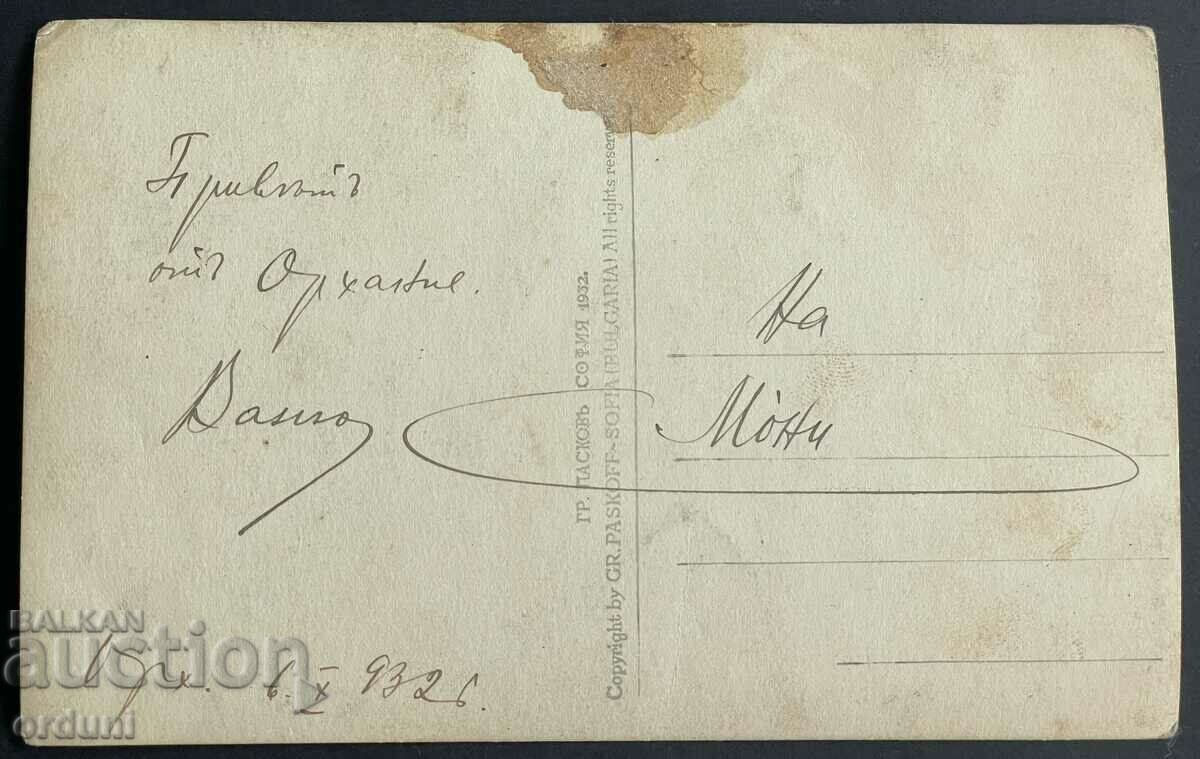 Приветъ
отъ Орхание.
Васко
Орх. 6.X 932 г.
ГР. ПАСКОВЪ СОФИЯ 1932.
Copyright by GR. PASKOFF-SOFIA (BULGARIA) All rights reserve
На
Мони
BALKAN
auction
orduni